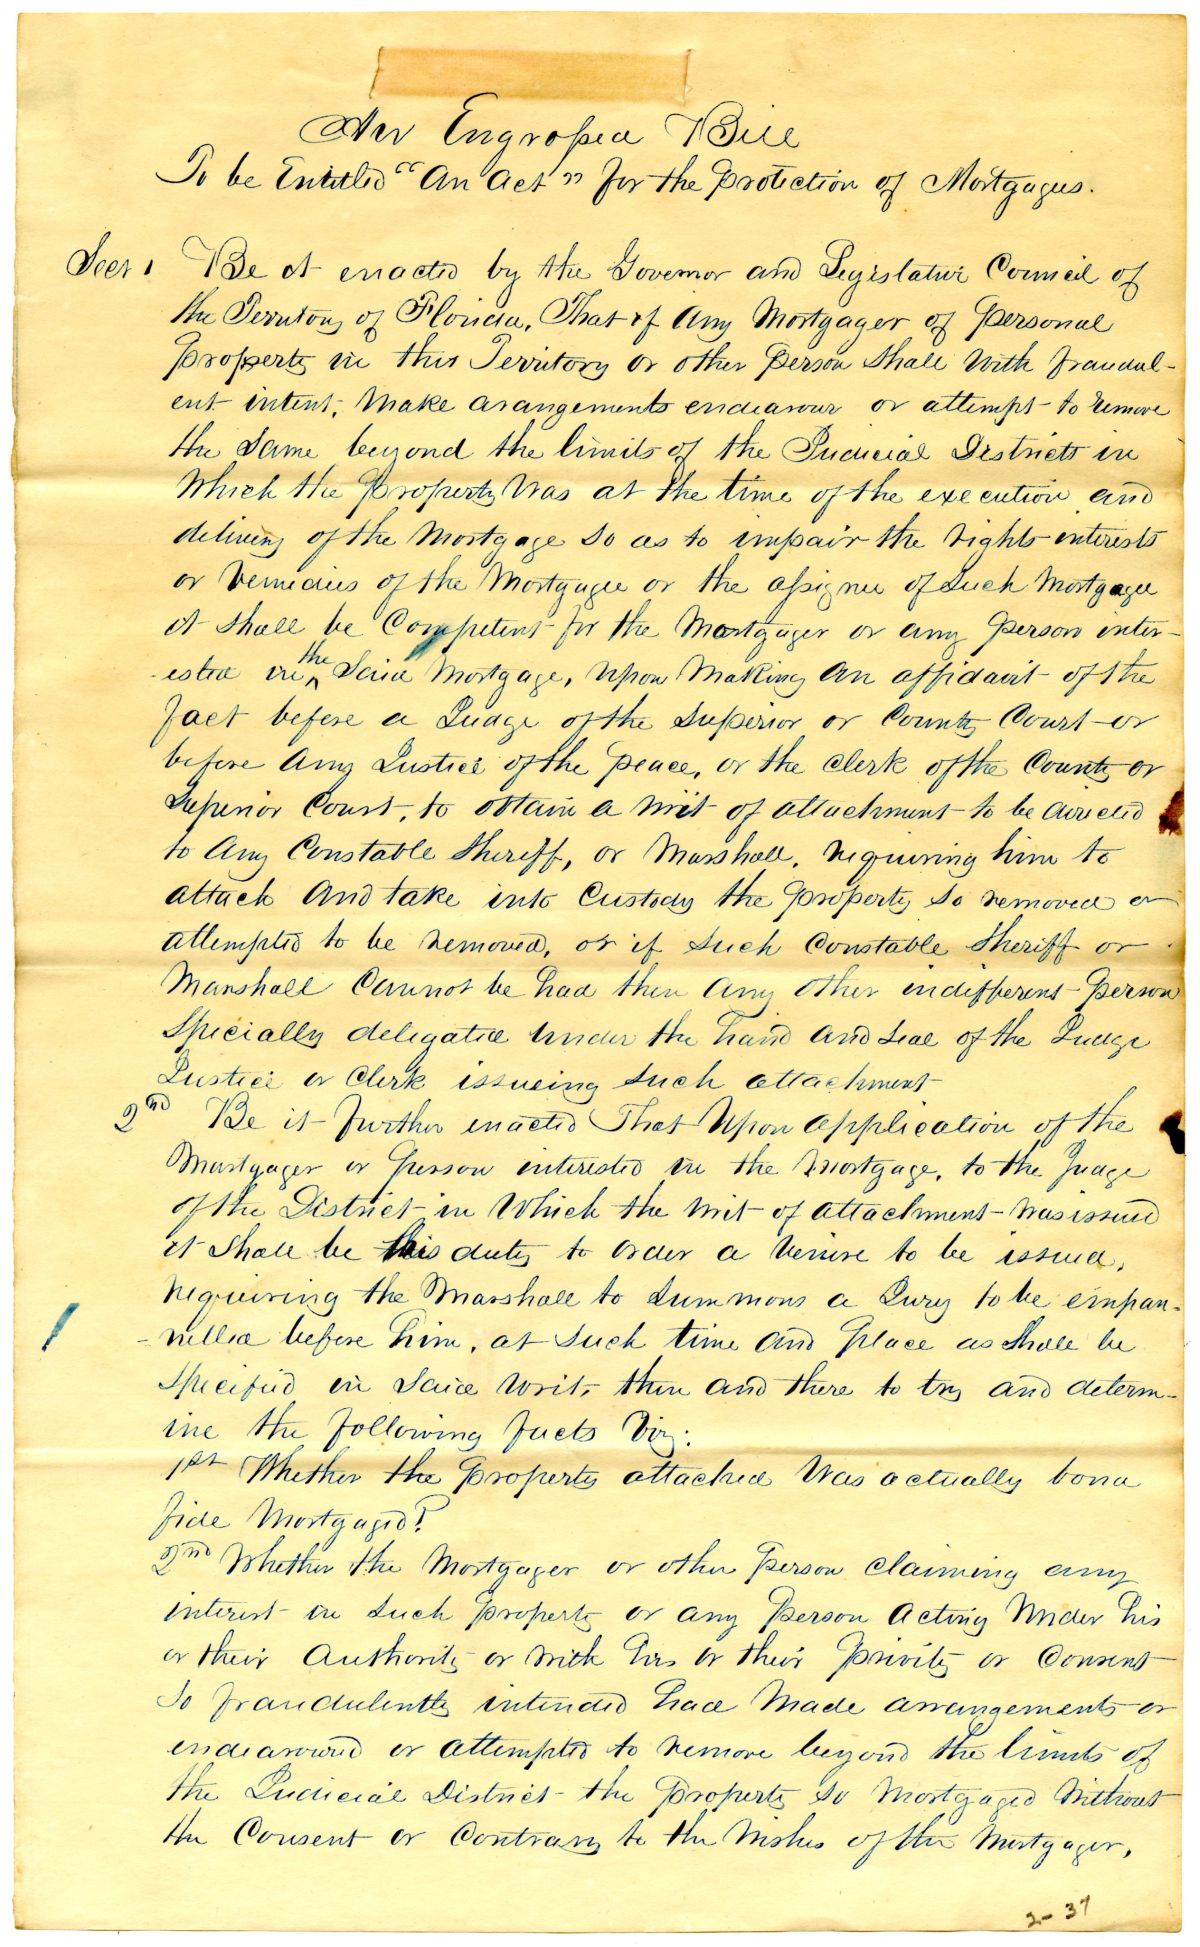 An Engrossed Bill
To be Entitled "An Act" for the Protection of Mortgages.
Sect 1 Be it enacted by the Governor and Legislative Council of
the Territory of Florida, That if any Mortgager of Personal
Property in this Territory or other Person Shall With fraudul-
ent intent, Make arangements endeavour or attempt to remove
the Same beyond the limits of the Judicial Districts in
Which the Property Was at the time of the execution and
delivery of the Mortgage So as to impair the rights interests
or remedies of the Mortgagee or the assignee of Such Mortgagee
it Shall be Competent for the Mortgager or any Person inter-
-ested in the Said Mortgage, Upon Making An affidavit of the
fact before a Judge of the Superior or County Court or
before Any Justice of the peace, or the Clerk of the County or
Superior Court, to obtain a Writ of attachment to be directed
to Any Constable Sheriff, or Marshall, requiring him to
attach And take into Custody the Property So removed or
attempted to be removed, or if Such Constable Sheriff or
Marshall Cannot be had then Any other indifferent Person
Specially delegated Under the hand And Seal of the Judge
Justice or Clerk issueing Such attachment
2nd Be it further enacted That Upon application of the
Mortgager or Person interested in the Mortgage, to the Judge
of the District in Which the Writ of attachment Was issued
it Shall be his duty to order a Venire to be issued,
requiring the Marshall to Summons a Jury to be empan-
-nelled before him, at Such time and Place as Shall be
Specified in Said Writ, then and there to try and determ-
ine the following facts Viz:
1st Whether the Property attached Was actually bona
fide Mortgaged?
2nd Whether the Mortgager or other Person Claiming any
interest in Such Property or any Person Acting Under his
or their Authority or With his or their Privity or Consent
So fraudulently intended had Made arrangements or
endeavoured or attempted to remove beyond the limits of
the Judicial District the Property So Mortgaged Without
the Consent or Contrary to the Wishes of the Mortgager,
2-37